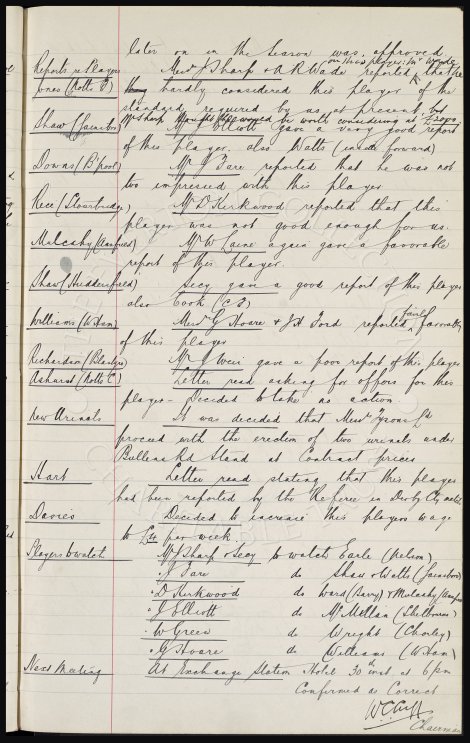 later on in the season was approved
Reports re Players
Messrs J Sharp & A R Wade reported that he
on this player. Mr Wade
Jones (Notts F)
hardly considered this player of the
standard required by us at present, but
Mr Sharp thought he would be worth considering at £3000
Shaw (Gainsboro)
Mr J Elliott gave a very good report
of this player, also Watts (inside forward)
Downs (B'pool)
Mr J Fare reported that he was not
too impressed with this player
Rece (Stourbridge)
Mr D Kirkwood reported that this
player was not good enough for us.
Mulcahy
Mr W Caine again gave a favorable
report of this player.
Shaw (Huddersfield)
Secy gave a good report of this player
also Cook
Williams (W.Ham)
Messrs G Hoare & J H Ford reported favorably
fairly
of this player
Richardson
Mr J Weir gave a poor report of this player
Ashurst (Notts C)
Letter read asking for offers for this
player – Decided to take no action.
New Urinals
It was decided that Messrs Tysons Ltd
proceed with the erection of two urinals under
Bullens Rd Stand at Contract prices
Hart
Letter read stating that this player
had been reported by the Referee in Derby Cty match
Davies
Decided to increase this players wage
to per week.
Players to watch
Mr J Sharp & Secy to watch Earle (Nelson)
" J Fare do Shaw & Watts (Gainsboro)
" D Kirkwood do Ward (Barry) & Mulcahy
" J Elliott do McMillan (Shelbourne)
" W Green do Wright (Chorley)
" G Hoare do Williams (W.Ham)
Next Meeting
At Exchange Station Hotel 30th inst. at 6 pm
Confirmed as Correct
W.C. Cuff
Chairman